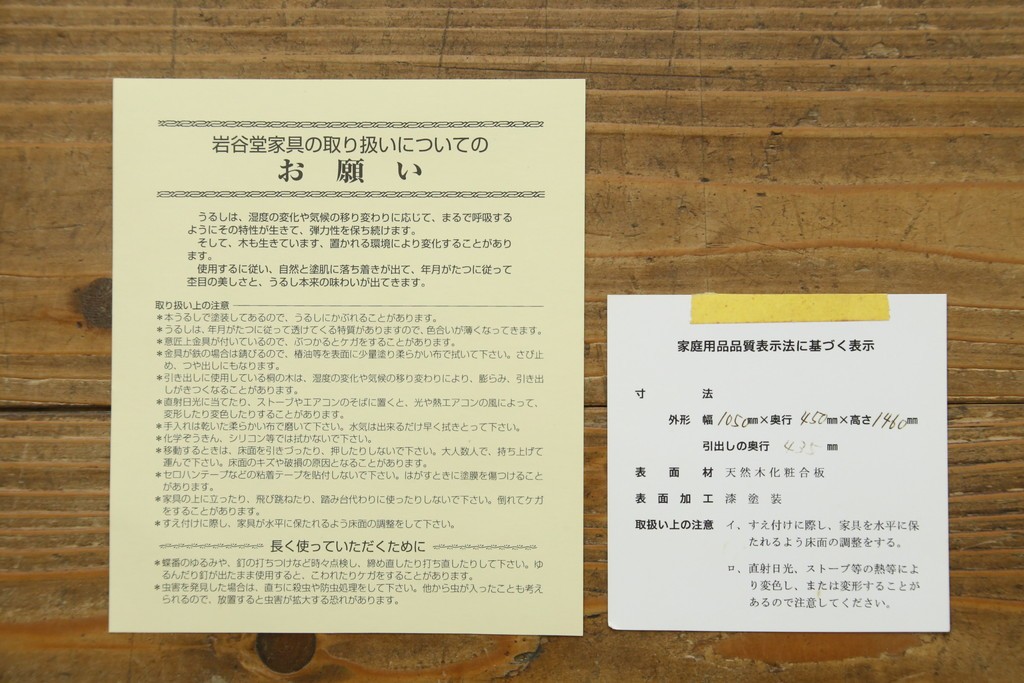 岩谷堂家具の取り扱いについての
お願い
うるしは、湿度の変化や気候の移り変わりに応じて、まるで呼吸する
ようにその特性が生きて、弾力性を保ち続けます。
そして、木も生きています、置かれる環境により変化することがあり
ます。
使用するに従い、自然と塗肌に落ち着きが出て、年月がたつに従って
杢目の美しさと、うるし本来の味わいが出てきます。
取り扱い上の注意
＊本うるしで塗装してあるので、うるしにかぶれることがあります。
＊うるしは、年月がたつに従って透けてくる特質がありますので、色合いが薄くなってきます。
＊意匠上金具が付いているので、ぶつかるとケガをすることがあります。
＊金具が鉄の場合は錆びるので、椿油等を表面に少量塗り柔らかい布で拭いて下さい。さび止
め、つや出しにもなります。
＊引き出しに使用している桐の木は、湿度の変化や気候の移り変わりにより、膨らみ、引き出
しがきつくなることがあります。
＊直射日光に当てたり、ストーブやエアコンのそばに置くと、光や熱エアコンの風によって、
変形したり変色したりすることがあります。
＊手入れは乾いた柔らかい布で磨いて下さい。水気は出来るだけ早く拭きとって下さい。
＊化学ぞうきん、シリコン等では拭かないで下さい。
＊移動するときは、床面を引きづったり、押したりしないで下さい。大人数人で、持ち上げて
運んで下さい。床面のキズや破損の原因となることがあります。
＊セロハンテープなどの粘着テープを貼付しないで下さい。はがすときに塗膜を傷つけること
があります。
＊家具の上に立ったり、飛び跳ねたり、踏み台代わりに使ったりしないで下さい。倒れてケガ
をすることがあります。
＊すえ付けに際し、家具が水平に保たれるよう床面の調整をして下さい。
長く使っていただくために
＊蝶番のゆるみや、釘の打ちつけなど時々点検し、締め直したり打ち直したりして下さい。ゆ
るんだり釘が出たまま使用すると、こわれたりケガをすることがあります。
＊虫害を発見した場合は、直ちに殺虫や防虫処理をして下さい。他から虫が入ったことも考え
られるので、放置すると虫害が拡大する恐れがあります。
家庭用品品質表示法に基づく表示
寸法
外形 幅1050㎜×奥行450㎜×高さ1460㎜
引出しの奥行 435㎜
表面材 天然木化粧合板
表面加工 漆塗装
取扱い上の注意 イ、すえ付けに際し、家具を水平に保
たれるよう床面の調整をする。
ロ、直射日光、ストーブ等の熱等によ
り変色し、または変形することが
あるので注意してください。